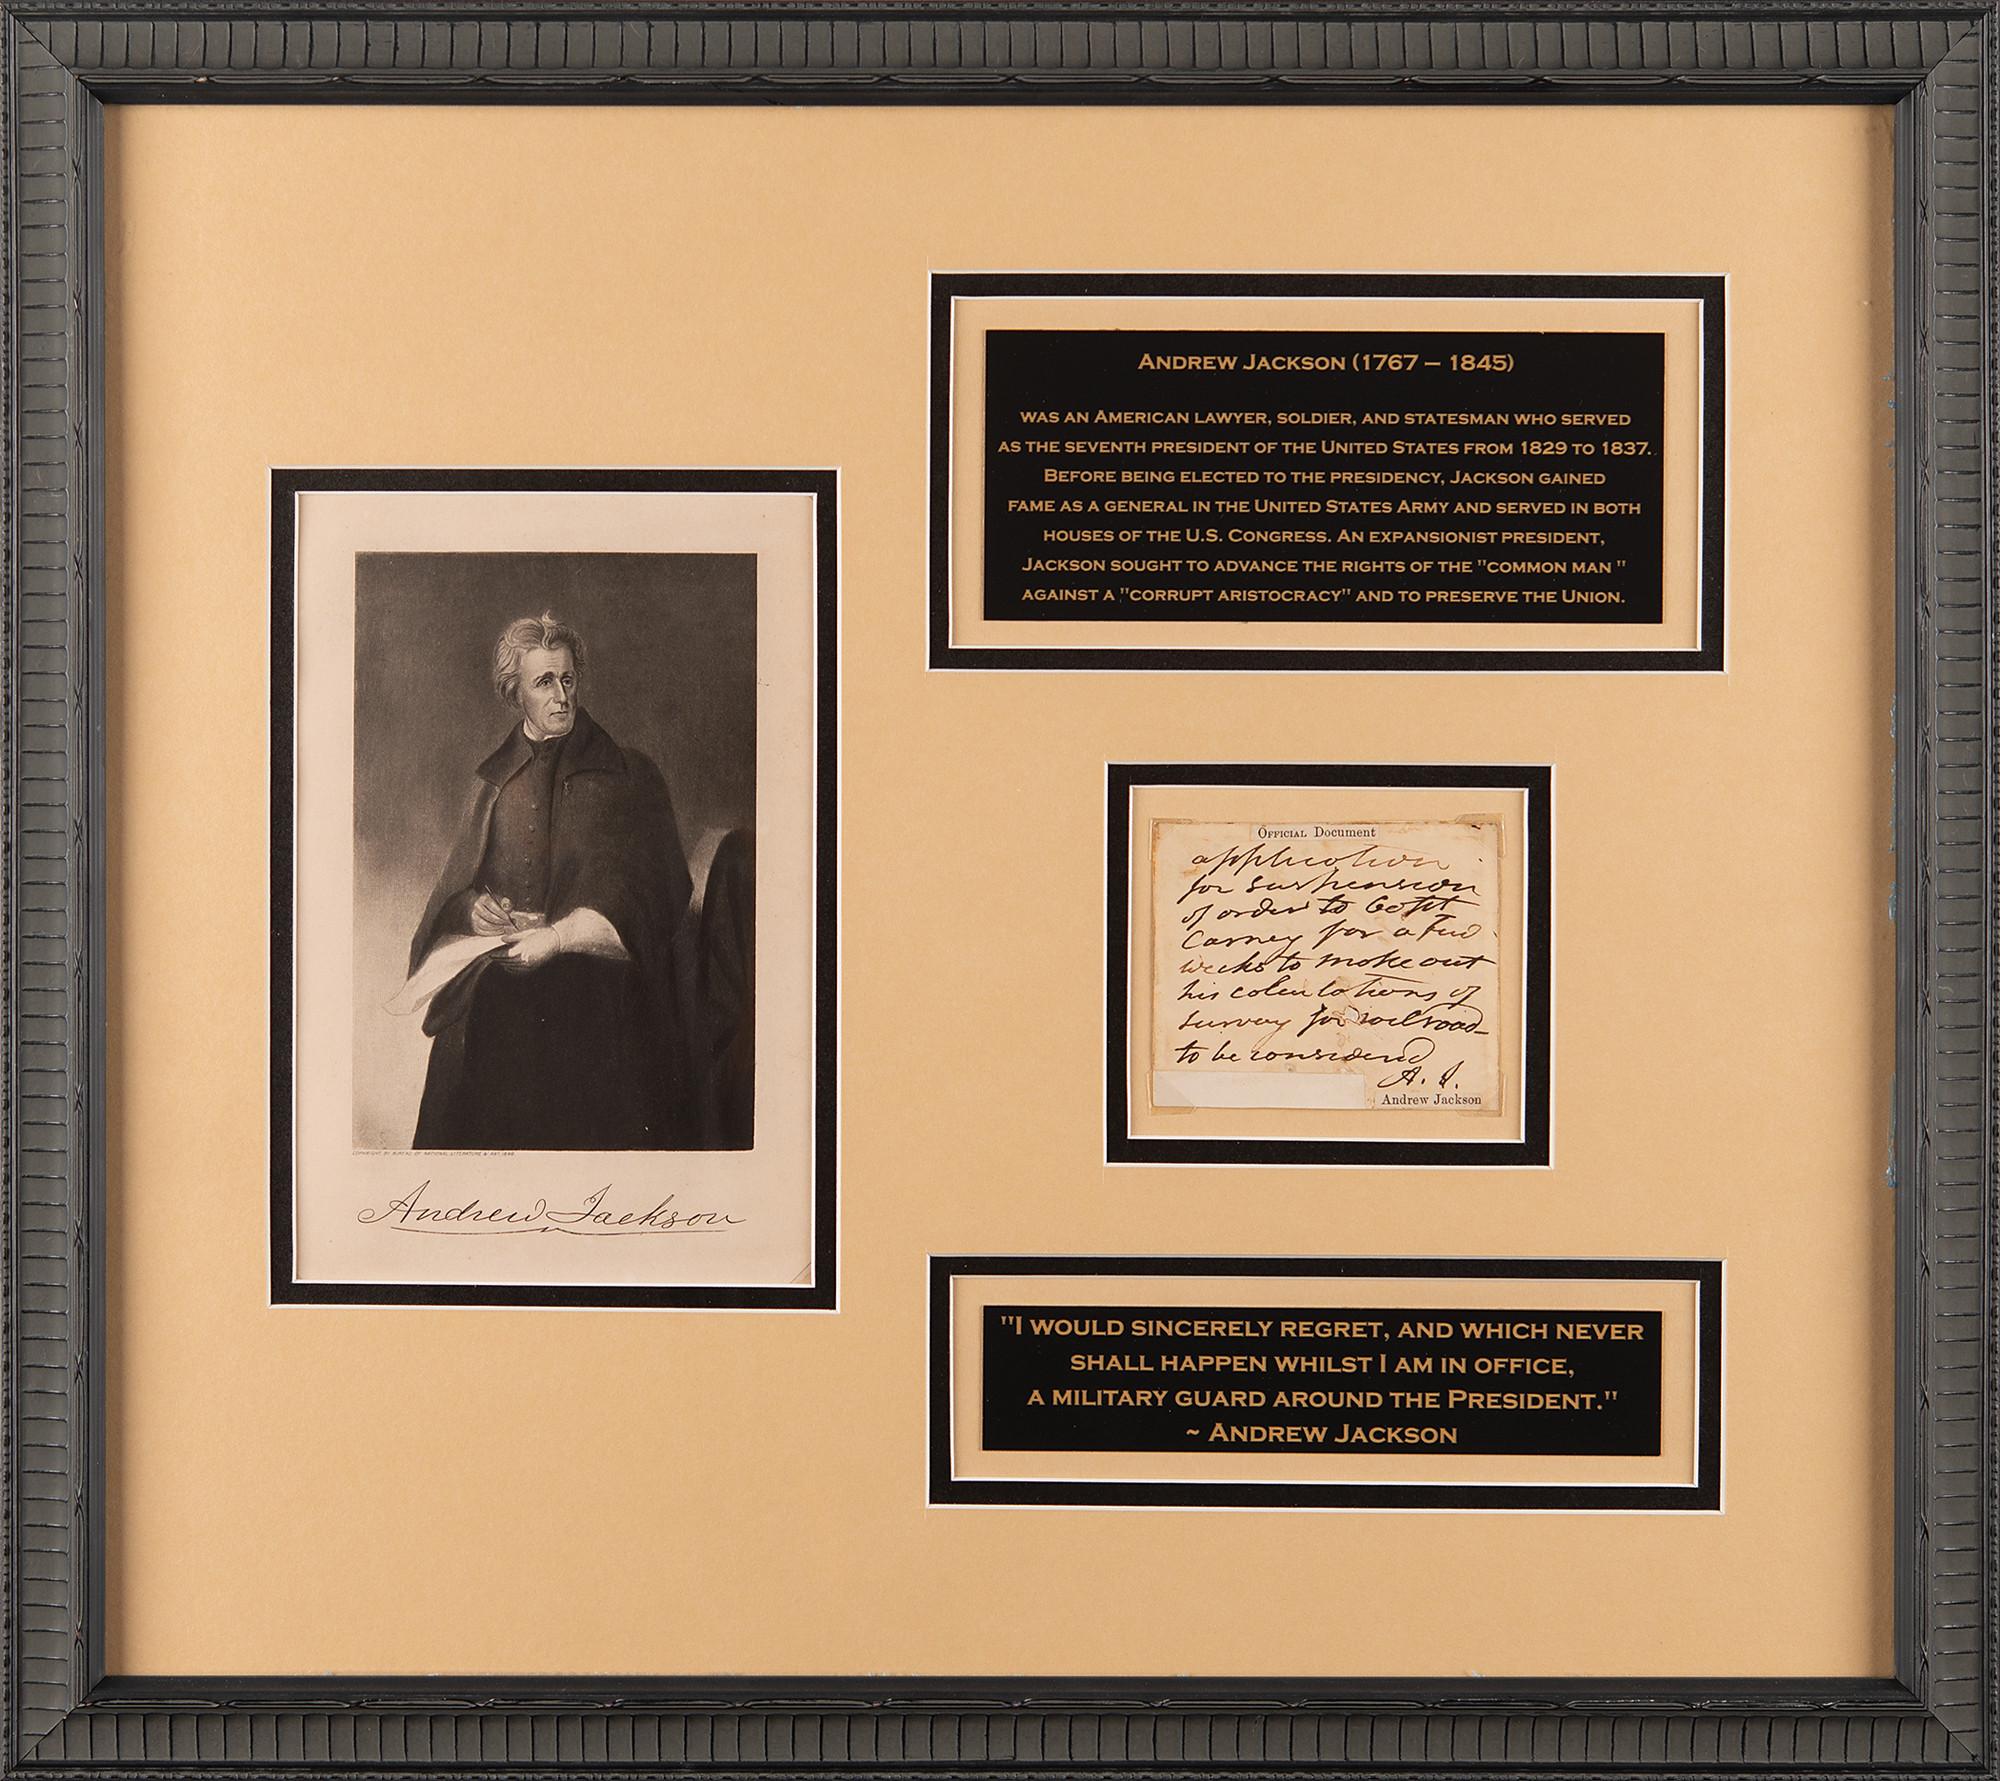 ANDREW JACKSON (1767 – 1845)
WAS AN AMERICAN LAWYER, SOLDIER, AND STATESMAN WHO SERVED
AS THE SEVENTH PRESIDENT OF THE UNITED STATES FROM 1829 TO 1837.
BEFORE BEING ELECTED TO THE PRESIDENCY, JACKSON GAINED
FAME AS A GENERAL IN THE UNITED STATES ARMY AND SERVED IN BOTH
HOUSES OF THE U.S. CONGRESS. AN EXPANSIONIST PRESIDENT,
JACKSON SOUGHT TO ADVANCE THE RIGHTS OF THE "COMMON MAN "
AGAINST A "CORRUPT ARISTOCRACY" AND TO PRESERVE THE UNION.
COPYRIGHT BY BUREAU OF NATIONAL LITERATURE & ART, 1899
Andrew Jackson
OFFICIAL Document
application
for suspension
of order to Capt
Carney for a few
weeks to make out
his calculations of
survey for railroad
to be considered
A. J.
Andrew Jackson
"I WOULD SINCERELY REGRET, AND WHICH NEVER
SHALL HAPPEN WHILST I AM IN OFFICE,
A MILITARY GUARD AROUND THE PRESIDENT."
~ ANDREW JACKSON